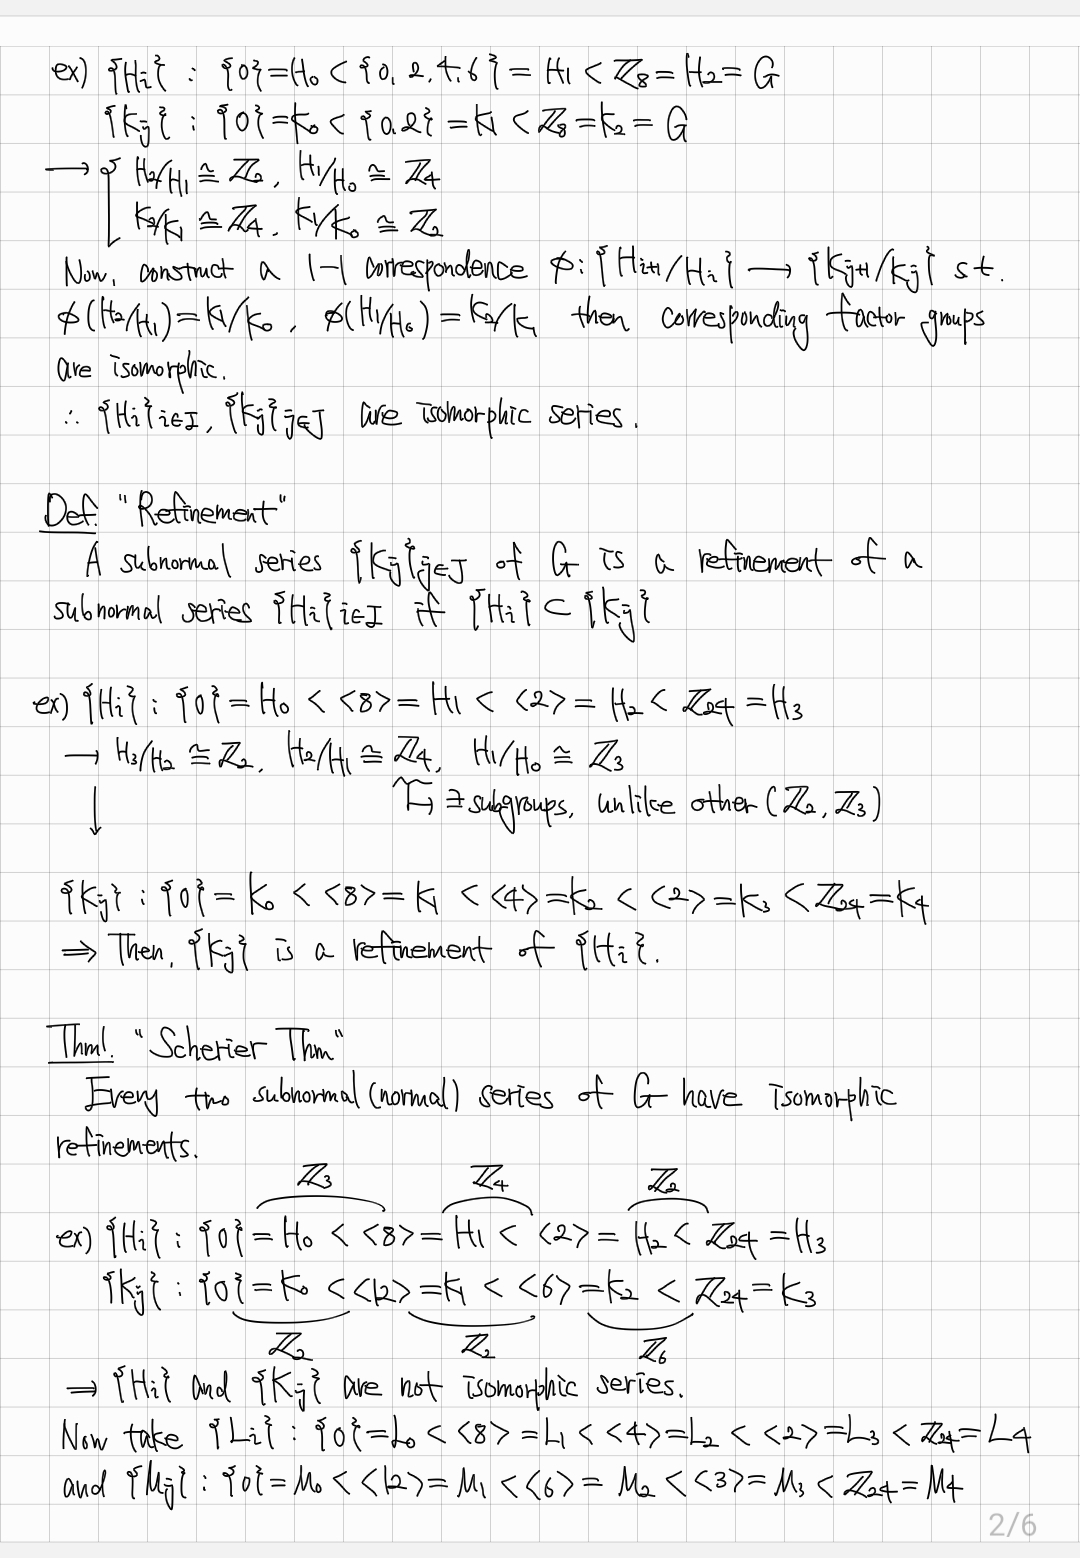 ex) {Hi} : {0}=H₀ < {0, 2, 4, 6} = H₁ < ℤ₈ = H₂ = G
{Kj} : {0}=K₀ < {0,2} = K₁ < ℤ₈ = K₂ = G
→ H₂/H₁ ≅ ℤ₂, H₁/H₀ ≅ ℤ₄
K₂/K₁ ≅ ℤ₄, K₁/K₀ ≅ ℤ₂
Now, construct a 1-1 correspondence ϕ: {Hi+1/Hi} → {Kj+1/Kj} s.t.
ϕ(H₂/H₁) = K₁/K₀, ϕ(H₁/H₀) = K₂/K₁ then corresponding factor groups
are isomorphic.
∴ {Hi}i∈I, {Kj}j∈J are isomorphic series.
Def. "Refinement"
A subnormal series {Kj}j∈J of G is a refinement of a
subnormal series {Hi}i∈I if {Hi} ⊂ {Kj}
ex) {Hi} : {0} = H₀ < <8> = H₁ < <2> = H₂ < ℤ₂₄ = H₃
→ H₃/H₂ ≅ ℤ₂, H₂/H₁ ≅ ℤ₄, H₁/H₀ ≅ ℤ₃
↓ ↳ ∃ subgroups, unlike other (ℤ₂, ℤ₃)
{Kj} : {0} = K₀ < <8> = K₁ < <4> = K₂ < <2> = K₃ < ℤ₂₄ = K₄
⇒ Then, {Kj} is a refinement of {Hi}.
Thm1. "Scherier Thm"
Every two subnormal (normal) series of G have isomorphic
refinements.
ℤ₃ ℤ₄ ℤ₂
ex) {Hi} : {0} = H₀ < <8> = H₁ < <2> = H₂ < ℤ₂₄ = H₃
{Kj} : {0} = K₀ < <12> = K₁ < <6> = K₂ < ℤ₂₄ = K₃
ℤ₂ ℤ₂ ℤ₆
⇒ {Hi} and {Kj} are not isomorphic series.
Now take {Li} : {0} = L₀ < <8> = L₁ < <4> = L₂ < <2> = L₃ < ℤ₂₄ = L₄
and {Mj} : {0} = M₀ < <12> = M₁ < <6> = M₂ < <3> = M₃ < ℤ₂₄ = M₄
2/6